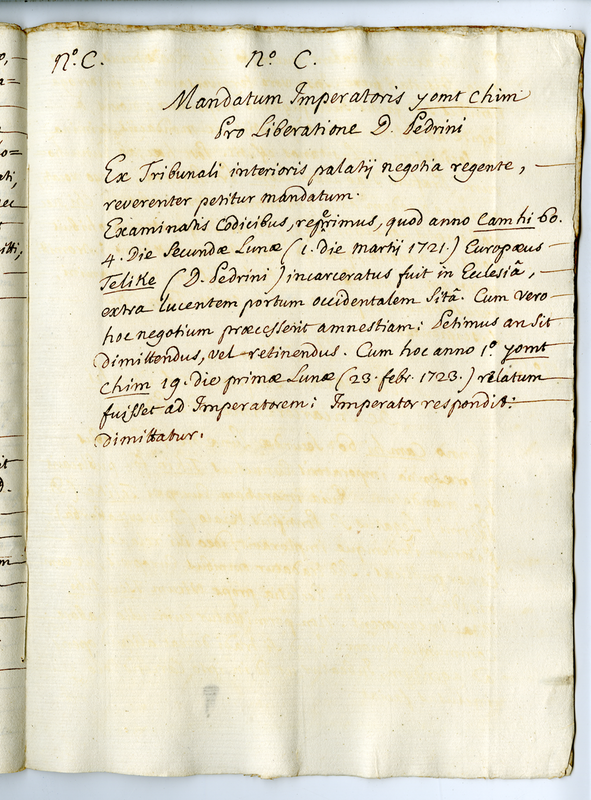 nº. C.
Nº C.
Mandatum Imperatoris yomt chim
Pro Liberatione D. Pedrini
Ex Tribunali interioris palatij negotia regente,
reverenter petitur mandatum.
Examinatis Codicibus, reperimus, quod anno Camhi 60.
4. Die Secundæ Lunæ (1. die martij 1721.) Europæus
Telike (D. Pedrini) incarceratus fuit in Ecclesiâ,
extra lucentem portum occidentalem Sitâ. Cum vero
hoc negotium præcesserit amnestiam: Petimus an Sit
dimittendus, vel retinendus. Cum hoc anno 1º. yomt
chim 19. Die primæ Lunæ (23. febr. 1723.) relatum
fuisset ad Imperatorem: Imperator respondit:
dimittatur.